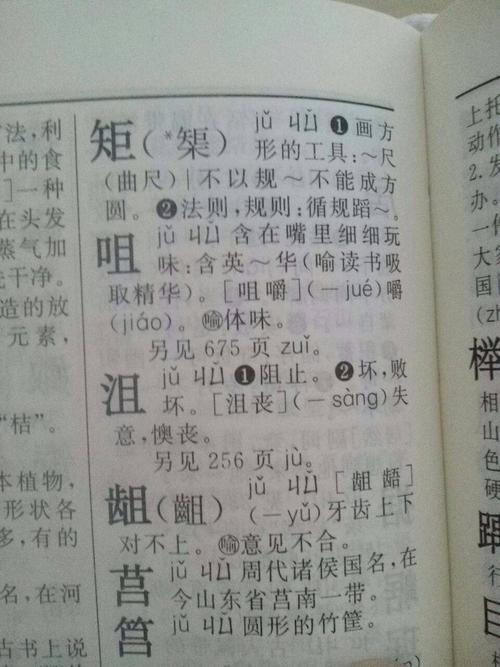 方法,利
中的食
]一种
在头发
蒸气加
洗干净。
造的放
元素,
“桔”。
本植物,
形状各
多,有的
名,在河
古书上说
矩(*榘) jǔ ㄐㄩˇ ❶画方
形的工具:~尺
(曲尺)|不以规~不能成方
圆。❷法则,规则:循规蹈~。
咀 jǔ ㄐㄩˇ 含在嘴里细细玩
味:含英~华(喻读书吸
取精华)。[咀嚼](-jué)嚼
(jiáo)。喻体味。
另见 675 页 zuǐ。
沮 jǔ ㄐㄩˇ ❶阻止。❷坏,败
坏。[沮丧](-sàng)失
意,懊丧。
另见 256 页 jù。
龃(齟) jǔ ㄐㄩˇ [龃龉]
(-yǔ)牙齿上下
对不上。喻意见不合。
莒 jǔ ㄐㄩˇ 周代诸侯国名,在
今山东省莒南一带。
筥 jǔ ㄐㄩˇ 圆形的竹筐。
上托
动作
2.发
办。
一件
大家
国
(zh
榉
相
山
色
硬